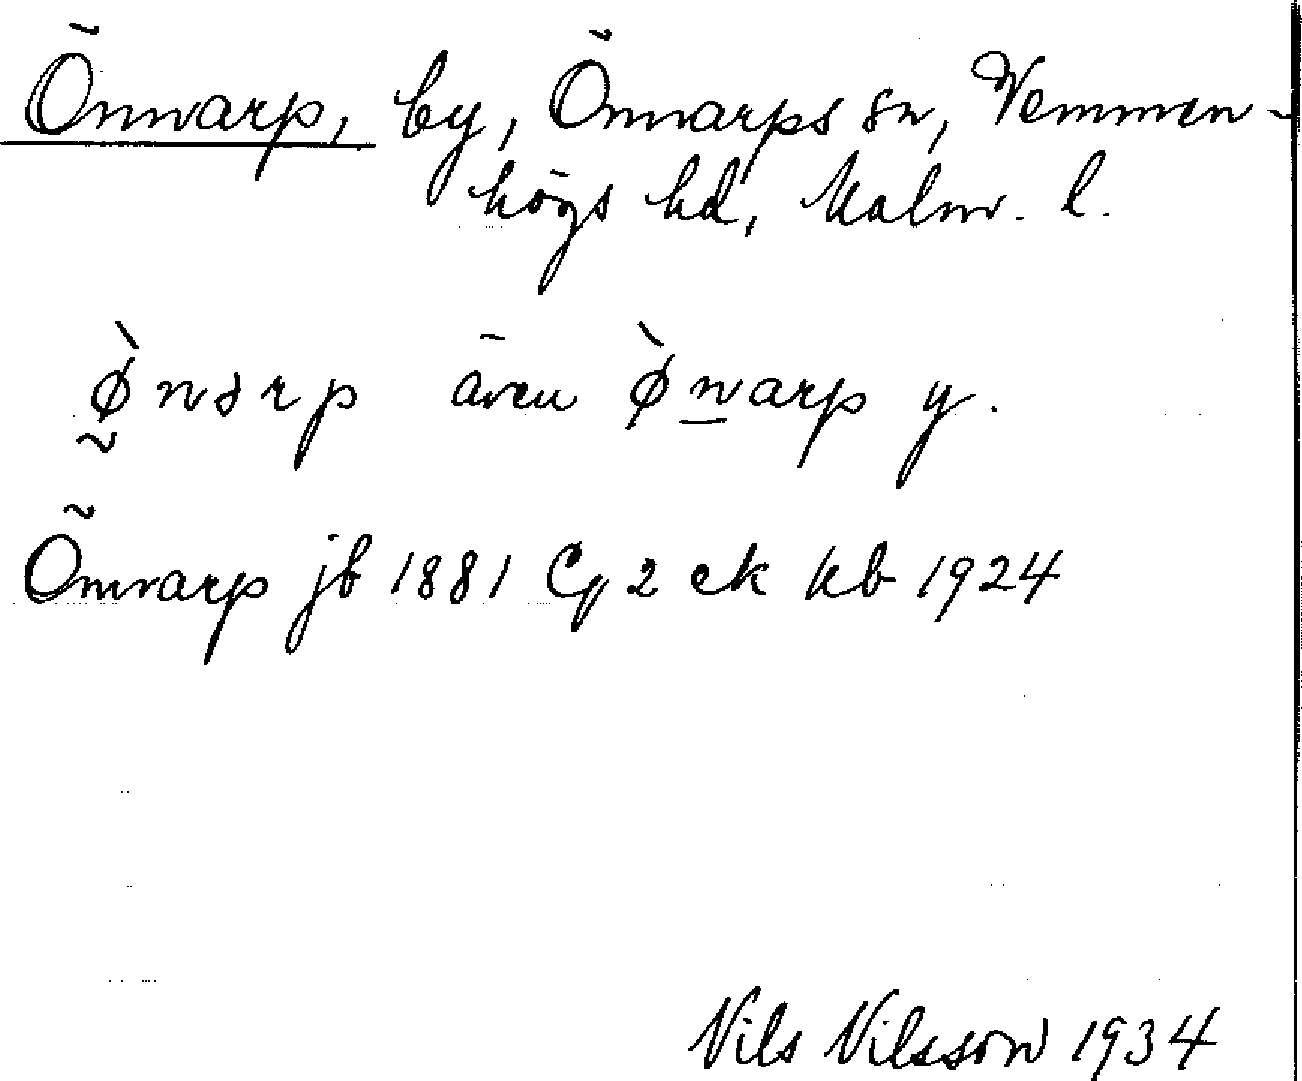 Önnarp, by, Önnarps sn, Vemmen-
högs hd, Malm. l.
ø̀nərp även ø̀narp y.
Önnarp jb 1881 Cg 2 ek kb 1924
Nils Nilsson 1934